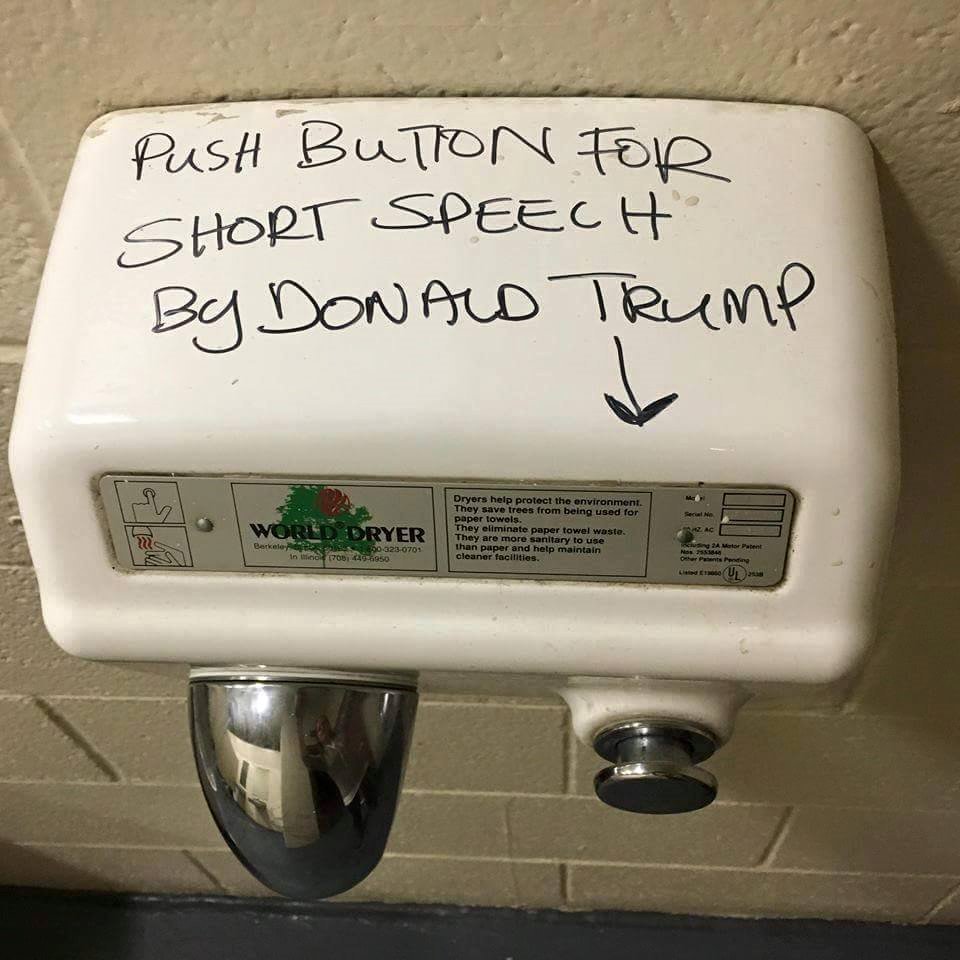 PUSH BUTTON FOR
SHORT SPEECH
BY DONALD TRUMP
WORLD DRYER
Berkeley
In Illinois (708) 449-6950
Dryers help protect the environment.
They save trees from being used for
paper towels.
They eliminate paper towel waste.
They are more sanitary to use
than paper and help maintain
cleaner facilities.
Model
Serial No.
HZ. AC
Including 2A Motor Patent
Nos. 2553846
Other Patents Pending
Listed
UL
253B